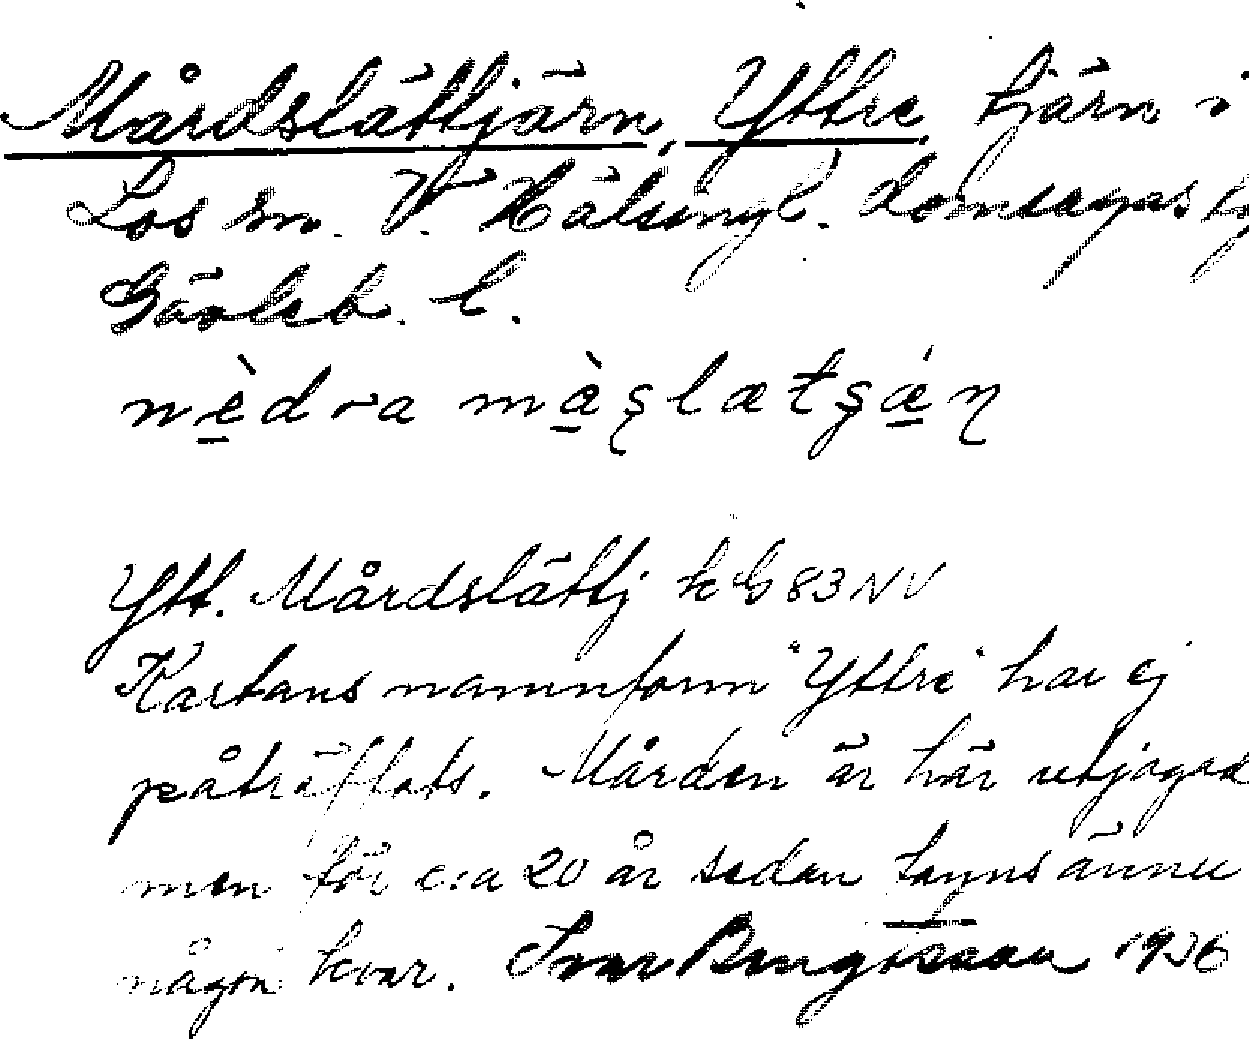 Mårdslättjärn, Yttre, tjärn i
Los sn. V. Hälsingl. domsagas
Gävleb. l.
nèdra màʂlætʂǽɳ
Ytt. Mårdslättj k G 83 NV
Kartans namnform "Yttre" har ej
påträffats. Mården är här utjagad
men för c:a 20 år sedan fanns ännu
någon kvar. Ivar Bengtsson 1926